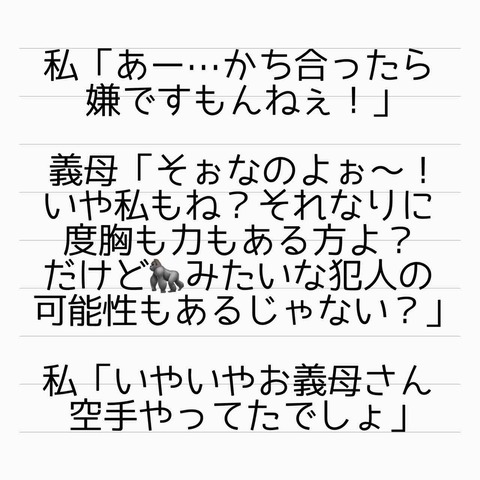 私「あー…かち合ったら
嫌ですもんねぇ！」
義母「そぉなのよぉ〜！
いや私もね？それなりに
度胸も力もある方よ？
だけど🦍みたいな犯人の
可能性もあるじゃない？」
私「いやいやお義母さん
空手やってたでしょ」